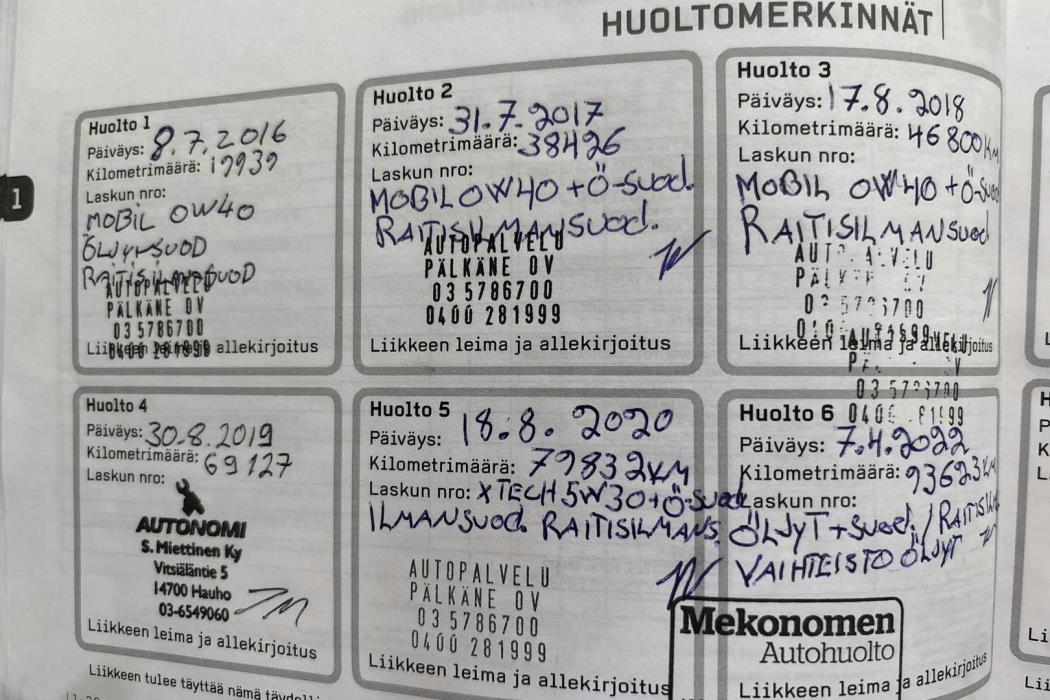 HUOLTOMERKINNÄT
1
Huolto 1
Päiväys: 8.7.2016
Kilometrimäärä: 19939
Laskun nro:
MOBIL 0W40
ÖLJYNSUOD
RAITISILMANSUOD
AUTOPALVELU
PÄLKÄNE OY
03 5786700
0400 281999
Liikkeen leima ja allekirjoitus
Huolto 2
Päiväys: 31.7.2017
Kilometrimäärä: 38426
Laskun nro:
MOBIL 0W40 + Ö-SUOD.
RAITISILMANSUOD.
AUTOPALVELU
PÄLKÄNE OY
03 5786700
0400 281999
Liikkeen leima ja allekirjoitus
Huolto 3
Päiväys: 17.8.2018
Kilometrimäärä: 46800KM
Laskun nro:
MOBIL 0W40 + Ö-SUOD
RAITISILMANSUOD
Liikkeen leima ja allekirjoitus
Huolto 4
Päiväys: 30.8.2019
Kilometrimäärä: 69127
Laskun nro:
AUTONOMI
S. Miettinen Ky
Vitsiäläntie 5
14700 Hauho
03-6549060
Liikkeen leima ja allekirjoitus
Huolto 5
Päiväys: 18.8.2020
Kilometrimäärä: 79832KM
Laskun nro: XTECH 5W30 + Ö-SUOD
ILMANSUOD. RAITISILMANS.
AUTOPALVELU
PÄLKÄNE OY
03 5786700
0400 281999
Liikkeen leima ja allekirjoitus
Huolto 6
Päiväys: 7.4.2022
Kilometrimäärä: 93623KM
Laskun nro:
ÖLJYT + SUOD. / RAITISILM
VAIHTEISTOÖLJYT
Mekonomen
Autohuolto
Liikkeen leima ja allekirjoitus
Liikkeen tulee täyttää nämä